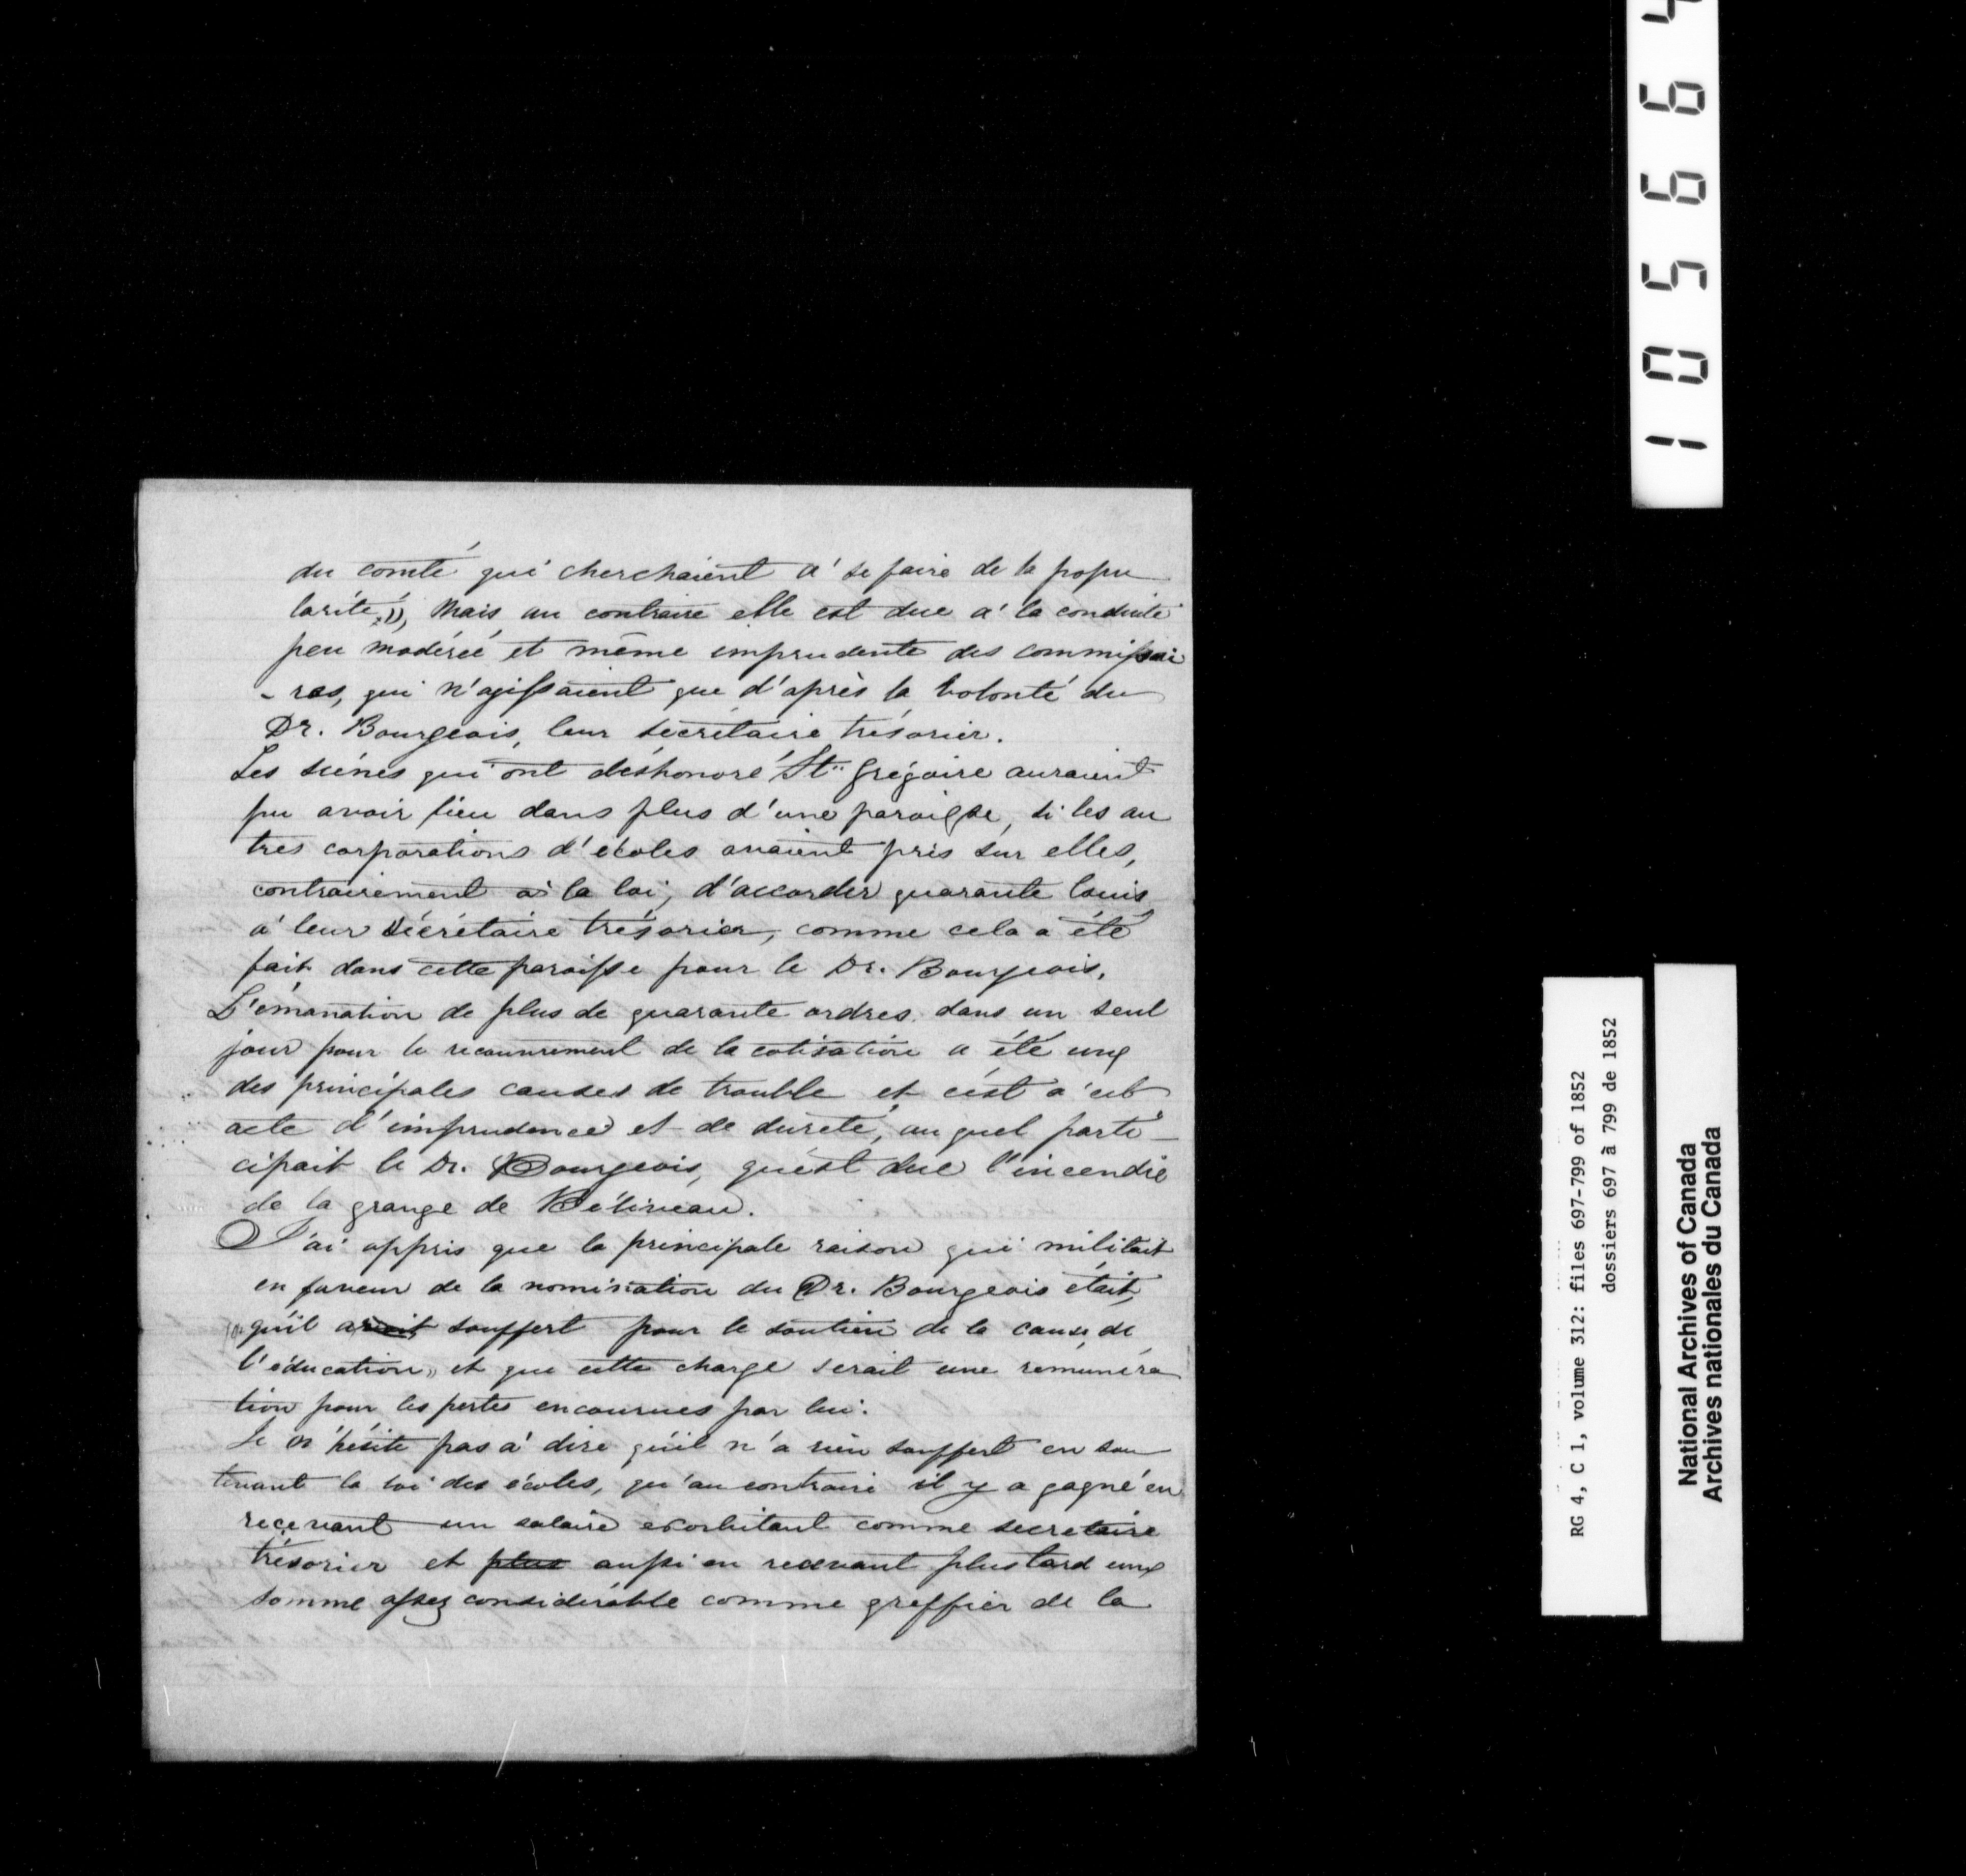 du comté qui cherchaient à se faire de la popu
larité,)), mais au contraire elle est due à la conduite
peu modérée et même imprudente des commissai
- res, qui n'agissaient que d'après la volonté du
Dr. Bourgeois, leur secrétaire trésorier.
Les scènes qui ont déshonoré St. Grégoire auraient
pu avoir lieu dans plus d'une paroisse, si les au
tres corporations d'écoles avaient pris sur elles,
contrairement à la loi, d'accorder quarante louis
à leur sécrétaire trésorier, comme cela a été
fait dans cette paroisse pour le Dr. Bourgeois.
L'émanation de plus de quarante ordres dans un seul
jour pour le recouvrement de la cotisation a été une
des principales causes de trouble et c'est à cet
acte d'imprudence et de dureté, au quel parti-
cipait le Dr. Bourgeois, qu'est due l'incendie
de la grange de Béliveau.
J'ai appris que la principale raison qui militait
en faveur de la nomination du Dr. Bourgeois était,
qu'il avait souffert pour le soutien de la cause de
l'éducation,, et que cette charge serait une rémunéra
tion pour les pertes encourues par lui.
Je n'hésite pas à dire qu'il n'a rien souffert en sou
tenant la loi des écoles, qu'au contraire il y a gagné en
recevant un salaire exorbitant comme secretaire
trésorier et plus aussi en recevant plus tard une
somme assez considérable comme greffier de la
1 0 5 6 6 4
RG 4, C 1, volume 312: files 697-799 of 1852
dossiers 697 à 799 de 1852
National Archives of Canada
Archives nationales du Canada